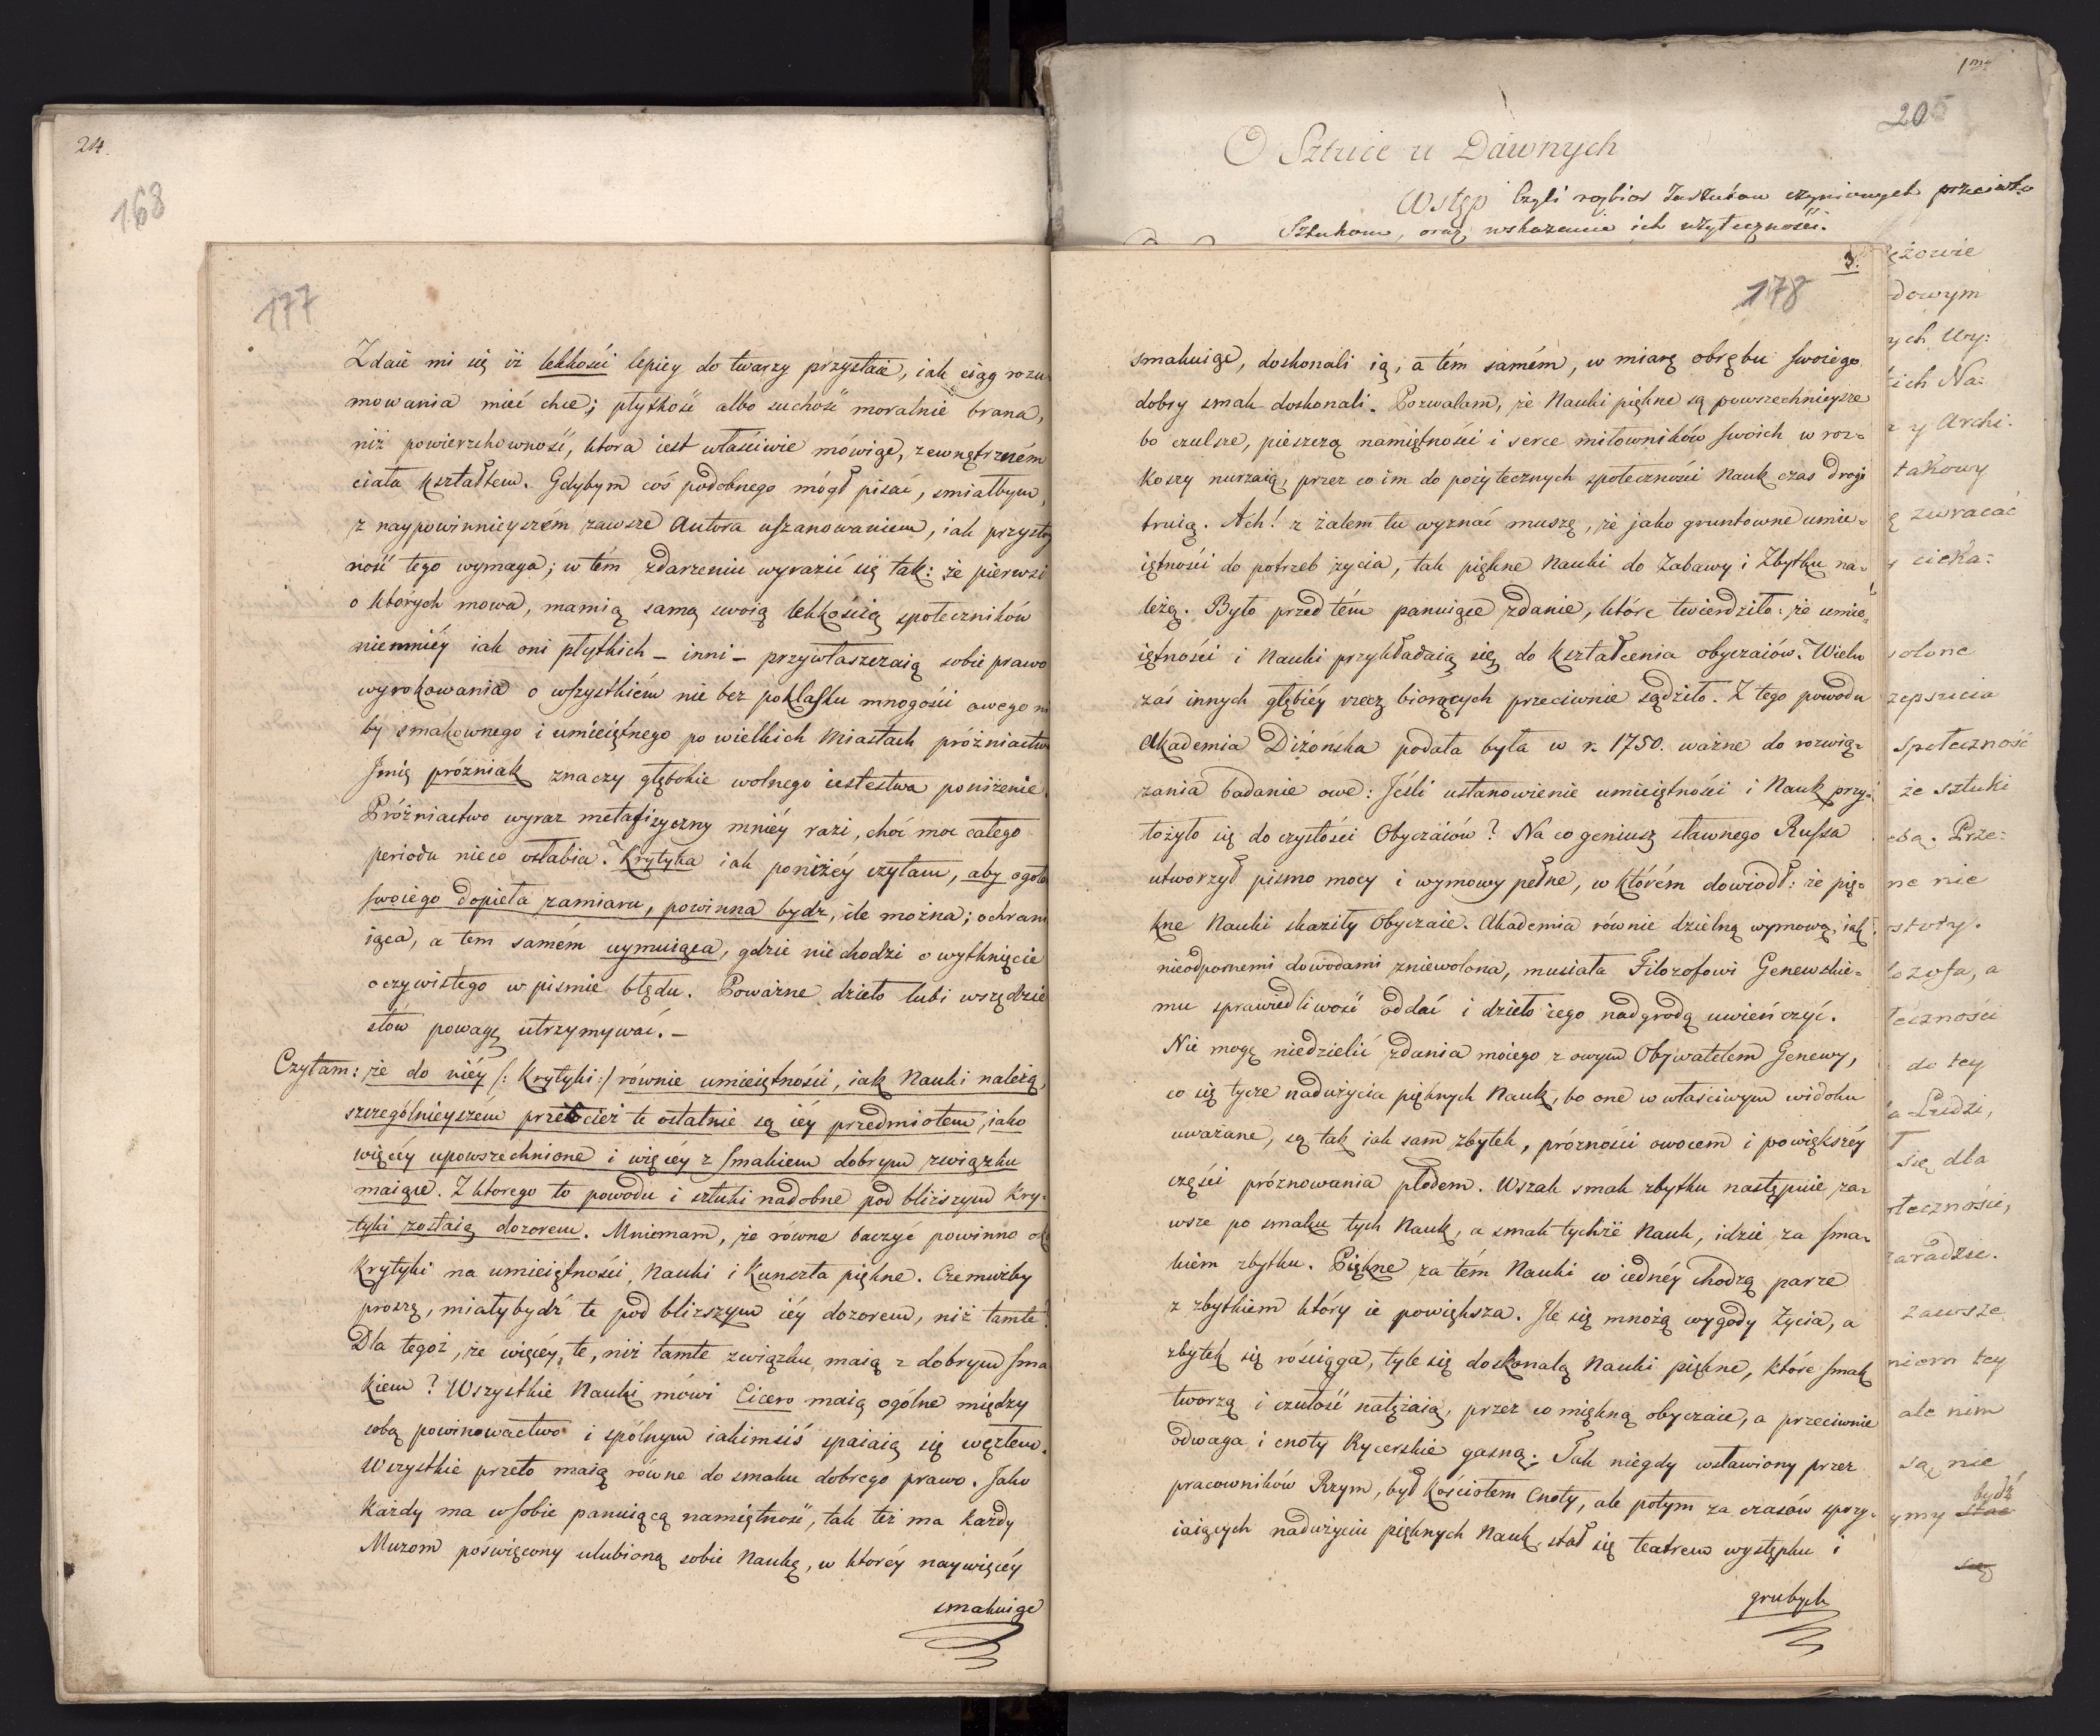 24.
168
177
Zdaie mi się iż lekkości lepiey do twarzy przystaie, iak ciąg rozu
mowania mieć chce; płytkość albo suchość moralnie brana,
niż powierzchowność, ktora iest właściwie mówiąc, zewnętrzném
ciała kształtem. Gdybym coś podobnego mógł pisać, smiałbym,
z naypowinnieyszém zawsze Autora uszanowaniem, iak przysto
ność tego wymaga; w tém zdarzeniu wyrazić się tak: że pierwsi
o których mowa, mamią samą swoią lekkością społeczników
niemniéy iak oni płytkich – inni – przywłaszczaią sobie prawo
wyrokowania o wszystkiém nie bez poklasku mnogości owego ni
by smakownego i umieiętnego po wielkich Miastach próżniactwa
Imię próżniak znaczy głębokie wolnego iestestwa poniżenie.
Próżniactwo wyraz metafizyczny mniéy razi, choć moc całego
periodu nieco osłabia. Krytyka iak poniżéy czytam, aby ogoło
swoiego dopięła zamiaru, powinna bydź, ile można; ochrani
iąca, a tem samém uymuiąca, gdzie nie chodzi o wytknięcie
oczywistego w pismie błędu. Poważne dzieło lubi wszędzie
słów powagę utrzymywać. –
Czytam: że do niéy /: Krytyki :/ równie umieiętności, iak Nauki należą,
szczególnieyszém przecież te ostatnie są iéy przedmiotem, iako
więcéy upowszechnione i więcéy z smakiem dobrym związku
maiące. Z ktorego to powodu i sztuki nadobne pod bliższym Kry-
tyki zostaią dozorem. Mniemam, że równe baczyć powinno oko
Krytyki na umieiętności, Nauki i Kunszta piękne. Czemużby
proszę, miałybydź te pod bliższym iéy dozorem, niż tamte?
Dla tegoż, że więcéy te, niż tamte związku maią z dobrym sma
kiem? Wszystkie Nauki mówi Cicero maią ogólne między
sobą powinowactwo i spólnym iakimsiś spaiaią się węzłem.
Wszystkie przeto maią równe do smaku dobrego prawo. Jako
każdy ma w sobie panuiącą namiętność, tak też ma każdy
Muzom poświęcony ulubioną sobie Naukę, w któréy naywięcéy
smakuiąc
1mo
205
O Sztuce u Dawnych
Wstęp Czyli rozbiór Zarzutów czynionych przeciwko
Sztukom, oraz wskazanie ich użyteczności.
3.
178
smakuiąc, doskonali ią, a tém samém, w miarę obrębu swoiego
dobry smak doskonali. Pozwalam, że Nauki piękne są powszechnieysze
bo czulsze, pieszczą namiętności i serce miłowników swoich w roz-
koszy nurzaią, przez co im do pożytecznych społeczności Nauk czas drogi
truią. Ach! z żalem tu wyznać muszę, że jako gruntowne umie-
iętności do potrzeb życia, tak piękne Nauki do Zabawy i Zbytku na-
leżą. Było przed tém panuiące zdanie, które twierdziło: że umie-
iętności i Nauki przykładaią się do kształcenia obyczaiów. Wielu
zaś innych głębiéy rzecz biorących przeciwnie sądziło. Z tego powodu
Akademia Diżońska podała była w r. 1750. ważne do rozwią-
zania badanie owe: Jeśli ustanowienie umieiętności i Nauk przy-
łożyło się do czystości Obyczaiów? Na co geniusz sławnego Russa
utworzył pismo mocy i wymowy pełne, w którém dowiodł: że pię-
kne Nauki skaziły Obyczaie. Akademia równie dzielną wymową, iak
nieodpornemi dowodami zniewolona, musiała Filozofowi Genewskie-
mu sprawiedliwość oddać i dzieło iego nadgrodą uwieńczyć.
Nie mogę niedzielić zdania moiego z owym Obywatelem Genewy,
co się tycze nadużycia pięknych Nauk, bo one w właściwym widoku
uważane, są tak iak sam zbytek, próżności owocem i powiększéy
części próżnowania płodem. Wszak smak zbytku następuie za-
wsze po smaku tych Nauk, a smak tychże Nauk, idzie za sma-
kiem zbytku. Piękne za tém Nauki w iednéy chodzą parze
z zbytkiem który ie powiększa. Ile się mnożą wygody Życia, a
zbytek się rościąga, tyle się doskonalą Nauki piękne, które smak
tworzą i czułość natężaią, przez co miękną obyczaie, a przeciwnie
odwaga i cnoty Rycerskie gasną. Tak niegdy wsławiony przez
pracowników Rzym, był Kościołem Cnoty, ale potym za czasów sprzy-
iaiących nadużyciu pięknych Nauk, stał się teatrem występku i
grubych
ężowie
dowym
ych Ury:
ich Na:
z y Archi:
takowy
ę zwracać
y cieka:
solone
zepsucia
Społeczność
że sztuki
eba. Prze:
ne nie
stoty.
lozofa, a
łeczności
do tey
a Ludzi,
się dla
łeczności,
zaradzie.
zawsze
niom tey
ale nim
są nie
bydź
ymy stać
się